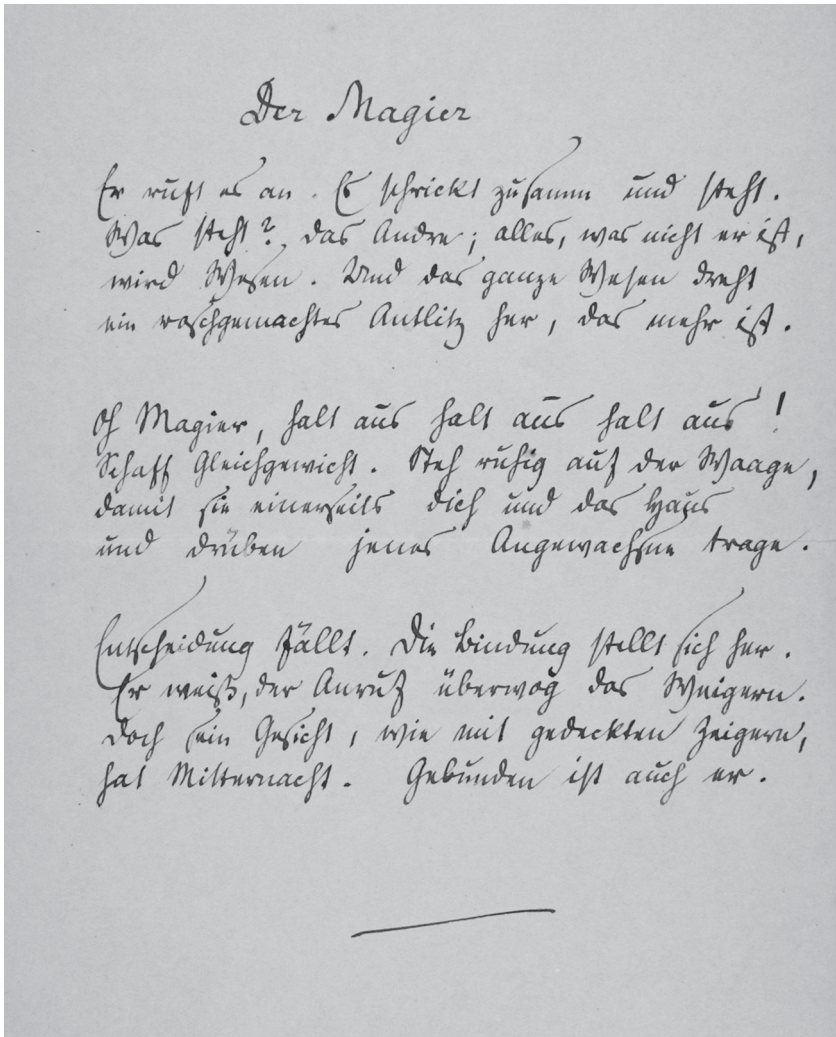 Der Magier
Er ruft es an. Es schrickt zusamm und steht.
Was steht? Das Andre; alles, was nicht er ist,
wird Wesen. Und das ganze Wesen dreht
ein raschgemachtes Antlitz her, das mehr ist.
Oh Magier, halt aus halt aus halt aus!
Schaff Gleichgewicht. Steh ruhig auf der Waage,
damit sie einerseits dich und das Haus
und drüben jenes Angewachsne trage.
Entscheidung fällt. Die Bindung stellt sich her.
Er weiß, der Anruf überwog das Weigern.
Doch sein Gesicht, wie mit gedeckten Zeigern,
hat Mitternacht. Gebunden ist auch er.